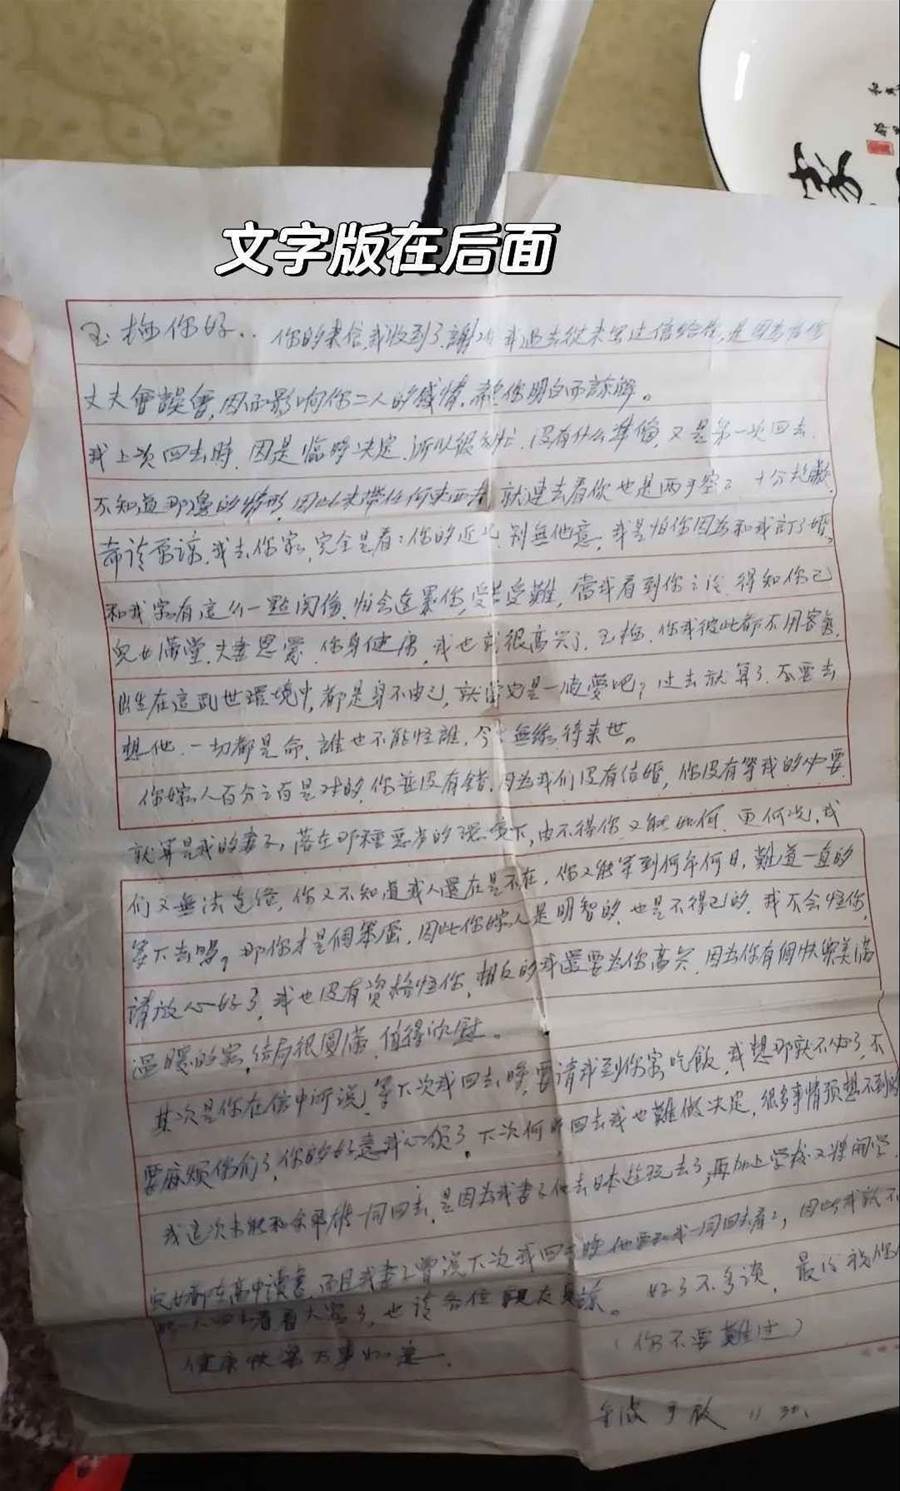 文字版在后面
玉梅你好.. 你的来信我收到了,謝谢 我过去從来没
丈夫會誤會,因而影响你二人的感情.希望你明白而諒解。
我上次回去時.因是臨時决定.所以很匆忙.没有什么準備,又是第一次回去.
不知道那邊的情形.因此未带任何東西去.就連去看你也是两手空空 十分抱歉.
奇諒.我去你家,完全是看看你的近况,别無他意,我是怕你因為和我訂了婚。
和我家有這么一點関係,怕会連累你,受苦受難,當我看到你之後,得知你已
兒女满堂.夫妻恩愛.你身健康,我也就很高兴了.玉梅.你我彼此都不用客氣.
出生在這亂世環境中,都是身不由己,過去就算了.不要去
想他.一切都是命.誰也不能怪誰.今生無緣待来世。
你嫁人百分之百是对的.你並没有錯.因為我们没有结婚,你没有等我的必要
就算是我的妻子,落在那種惡劣的環境下,由不得你又能如何.更何况,我
们又無法連絡,你又不知道我人還在是不在,你又能等到何年何月,難道一直的
等下去嗎?那你才是個笨蛋.因此你嫁人是明智的.也是不得已的.我不会怪你,
請放心好了,我也没有資格怪你,相反的我還要為你高兴.因為你有個快樂美满
温暖的家,结局很圓满.值得欣慰。
其次是你在信中所說.等下次我回去時,要請我到你家吃飯.我想那就不必了,不
要麻烦你们了,你的好意我心领了.下次何時回去我也難做决定,很多事情预想不到的
我這次未能和余平雄一同回去.是因為我妻子他去日本遊玩去了,再加上學校又将開学.
兒女都在高中讀書.而且我妻子曾説下次我回去時他要和我一同回去看看,因此我就不
回去看看大家了,也請各位親友見諒。 好了不多談. 最後祝你
健康快樂万事如意. (你不要難过)
手啟 11 30.